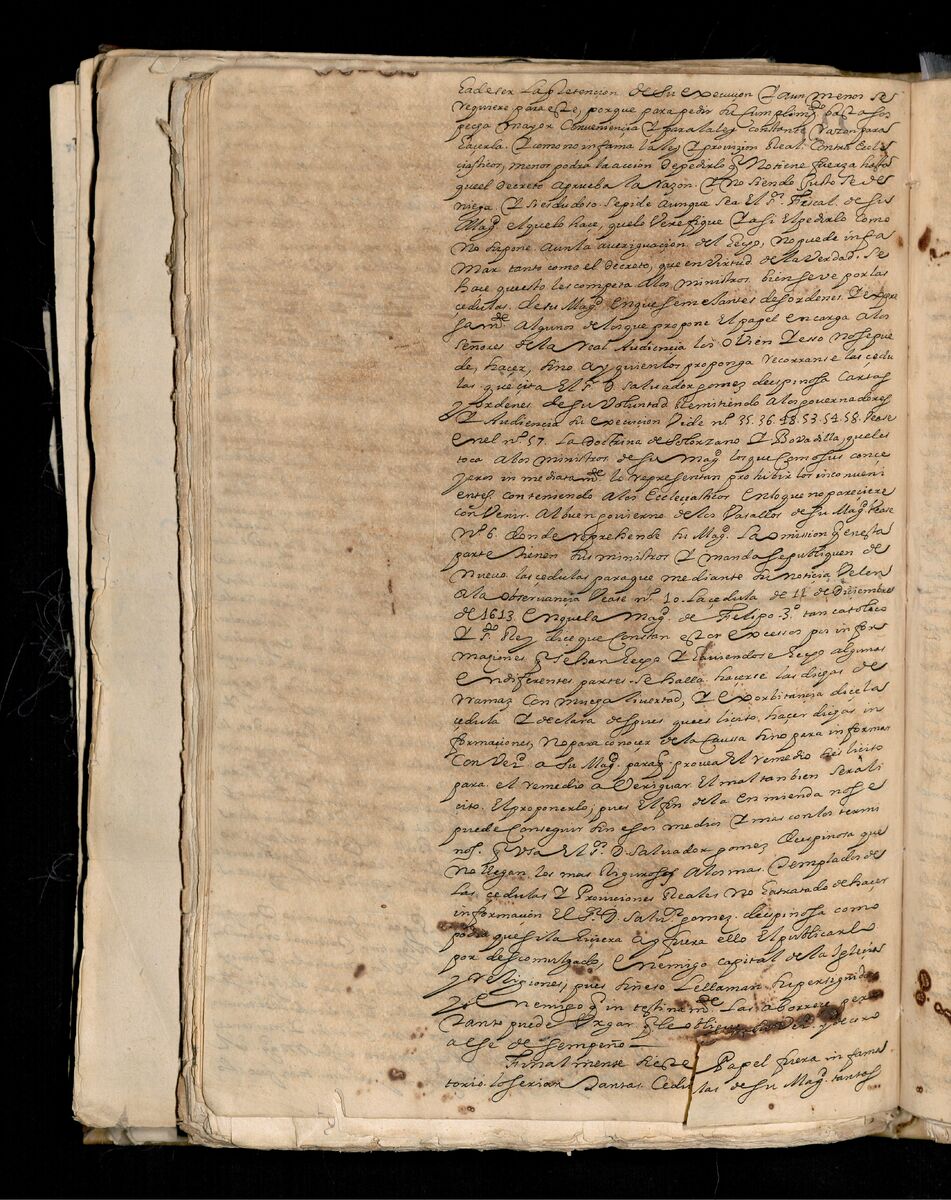 ea de ser la retencion de su execucion Y aun menor se
requiere para este, porque para pedir su cumplimto. basta sos
pecha mayor Conveniencia Y para la ley constante razon para
hacerla. Y como no infama la ley Y provizion Real. Contra Ecle
ciasticos, menos podra la accion de pedirlo q No tiene fuerza hasta
que el decreto aprueba la razon. Y No siendo Justo se de
niega Y si es dudoso se pide aunque sea El Sr. Fiscal. de su
Magd. el que lo hace, que lo Verefique Y asi El pedirlo como
No supone aun la averiguacion del hecho, No puede infa
mar tanto como el decreto, que en virtud de la Verdad. Se
hace que esto les competa a los ministros bien se ve por las
cedulas de su Magd. en que semejantes desordenes Y expre
samte. algunos de los que propone El papel encarga a los
Señores de la Real Audiencia los Y esso No se pue
de, hacer, sino ay quien los proponga recorranse las cedu
las que cita El Sr. D. Salvador gomez de espinosa Cartas
y ordenes de su Voluntad Remitiendo a los governadores
Y Audiencia su execucion Vide ns. 35.36.48.53.54.58. Vease
en el no. 57. La doctrina de Solorzano Y Bovadilla, que les
toca a los ministros de su Magd. los que como sus conce
jeros inmediatamte. le representan prohibir los inconueni
entes conteniendo a los Ecclesiasticos en lo que no pareciere
conVenir. Al buen govierno de los Vasallos de su Magd. Vease
No. 6. donde reprehende su Magd. La omission q en esta
parte tienen sus ministros Y manda se publiquen de
Nuevo las cedulas para que mediante su noticia Velen
a la observancia Vease no. 10. La cedula de 11 de Diciembre
de 1613. en que la Magd. de Felipo 3o. tan catolico
Y Sto. Rey dice que Constan estos excessos por infor
maziones q se han hecho Y haviendose hecho algunas
en diferentes partes. Se halla. hacerse las dichas de
rramas con mucha livertad, Y exorbitancia dice la
cedula Y declara despues que es licito, hacer dichas in
formaciones, No para conocer de la Causa sino para informar
Con Ver. a su Magd. para q provea el remedio si es licito
para el remedio aVeriguar El mal tanbien sera li
cito. El proponerlo, pues El fin de la enmienda no se
puede Conseguir sin esos medios Y mas con los termi
nos. q Vsa El Sr. D. Salvador gomez de espinosa que
No llegan los mas rigurosos a los mas templados de
las cedulas Y Proviciones Reales No ha tratado de hacer
informacion El Sr. D. Salvr. gomez. de espinosa como
podia que si la hiciera que fuera ello El publicarlo
por descomulgado, enemigo capital de la Iglesia
y religiones, pues sin eso le llaman su perseguidor
y enemigo q Las aborrece pero
tanto puede q le
a ese desempeño
Finalmente si este Papel fuera infama
torio lo serian tantas Cedulas de su Magd. tantos